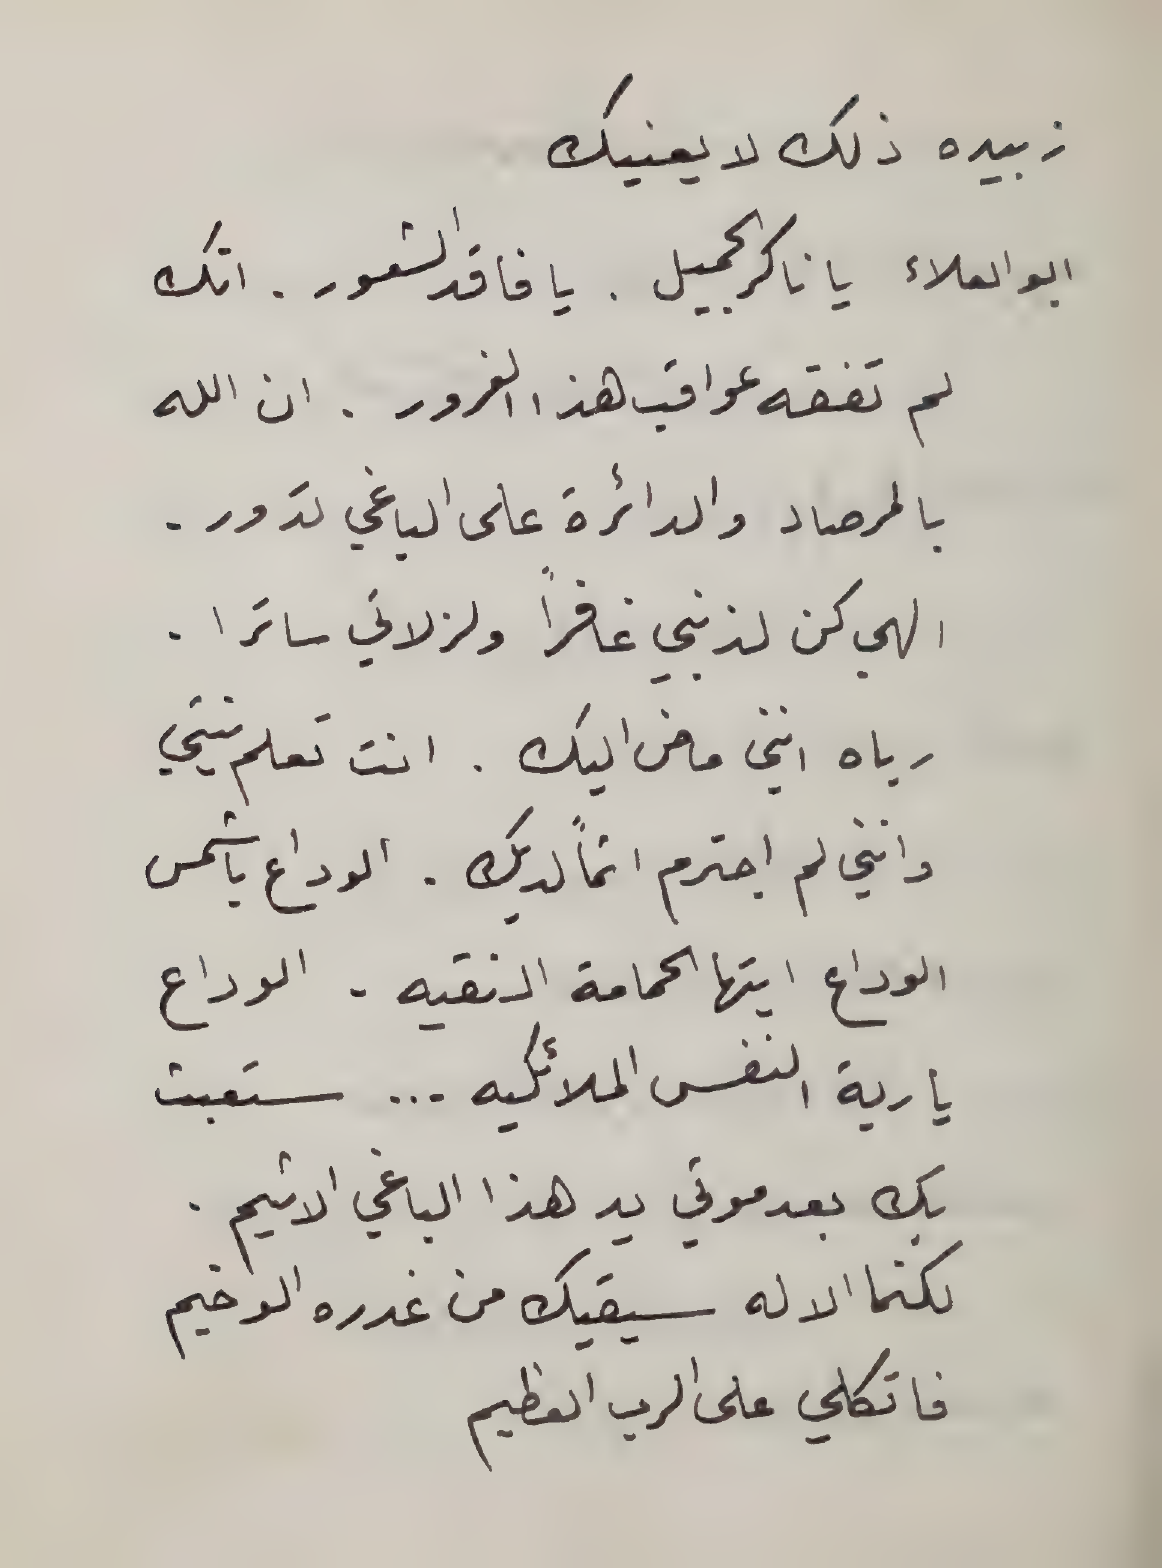 زبيده ذلك لا يعنيك
ابو العلاء يا ناكر الجميل . يا فاقد الشعور . انك
لم تفقه عواقب هذا الغرور . ان الله
بالمرصاد والدائرة على الباغي تدور .
الهي كن لذنبي غافراً ولزلاتي ساترا .
رباه انني ماض اليك . انت تعلم نيتي
وانني لم اجترم اثماً لديك . الوداع يا شمس
الوداع ايتها الحمامة النقيه . الوداع
يا ربة النفس الملائكيه ... ستعبث
بك بعد موتي يد هذا الباغي الاثيم .
لكنما الاله سيقيك من غدره الوخيم
فاتكلي على الرب العظيم